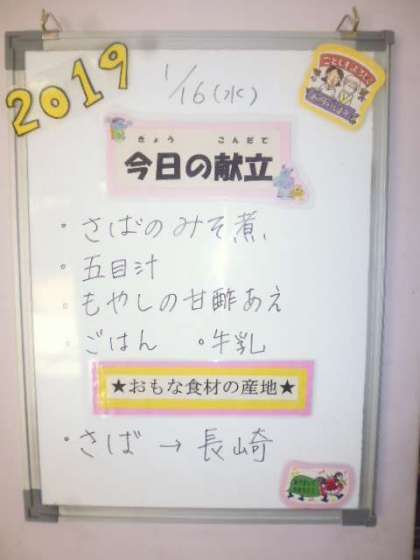 2019
1/16(水)
きょう こんだて
今日の献立
・さばのみそ煮
・五目汁
・もやしの甘酢あえ
・ごはん ・牛乳
★おもな食材の産地★
・さば → 長崎